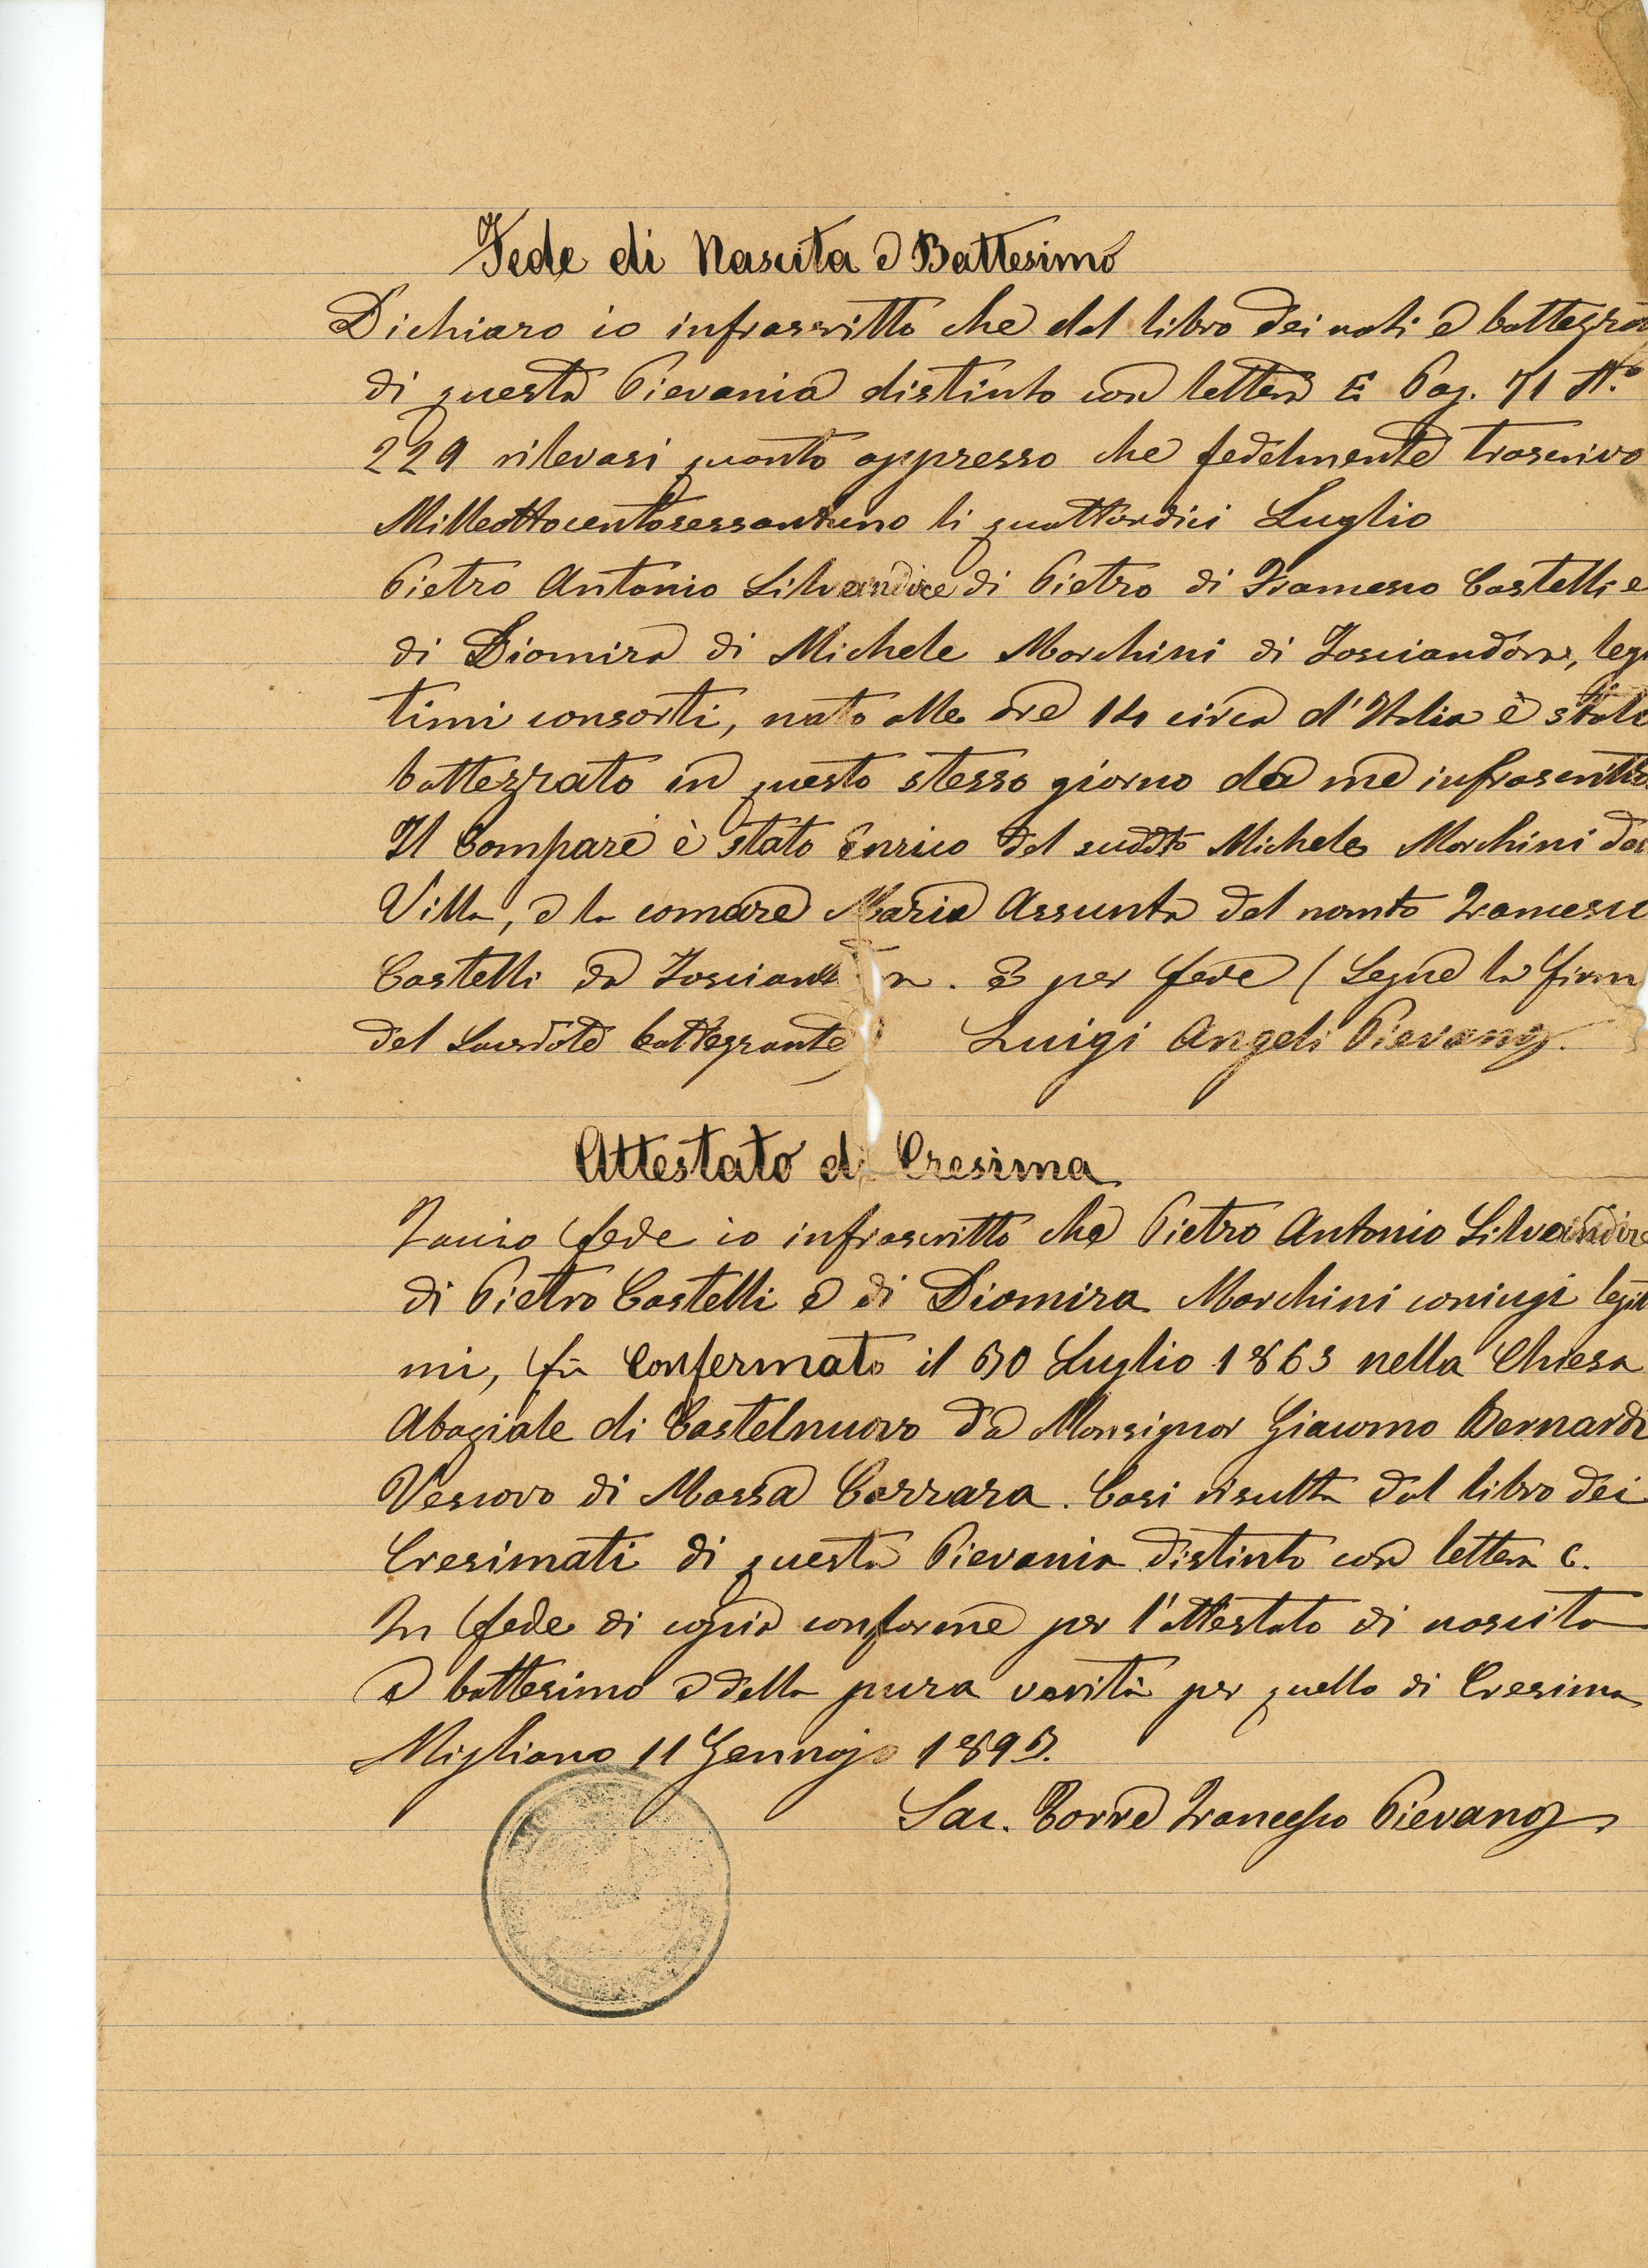 Fede di Nascita e Battesimo
Dichiaro io infrascritto che dal libro dei nati e battezza
di questa Pievania distinto con lettera E Pag. 71 N.º
229 rilevasi quanto appresso che fedelmente trascrivo
Milleottocentosessantuno li quattordici Luglio
Pietro Antonio Silvandice di Pietro di Francesco Castelli e
di Diomira di Michele Marchini di Fosciandora, legi
timi consorti, nato alle ore 14 circa d'Italia è stato
battezzato in questo stesso giorno da me infrascritto.
Il Compare è stato Enrico del suddto Michele Marchini da
Villa, e la comare Maria Assunta del nomto Francesco
Castelli da Fosciand ra. E per fede (Segue la firm
del Sacerdote battezzante) Luigi Angeli Pievano.
Attestato di Cresima
Faccio fede io infrascritto che Pietro Antonio Silvandice
di Pietro Castelli e di Diomira Marchini coniugi legit
mi, fu Confermato il 30 Luglio 1863 nella Chiesa
Abaziale di Castelnuovo da Monsignor Giacomo Bernardi
Vescovo di Massa Carrara. Così risulta dal libro dei
Cresimati di questa Pievania distinto con lettera C.
In fede di copia conforme per l'attestato di nascita
e battesimo e della pura verità per quello di Cresima
Migliano 11 Gennajo 1893.
Sac. Torre Francesco Pievano